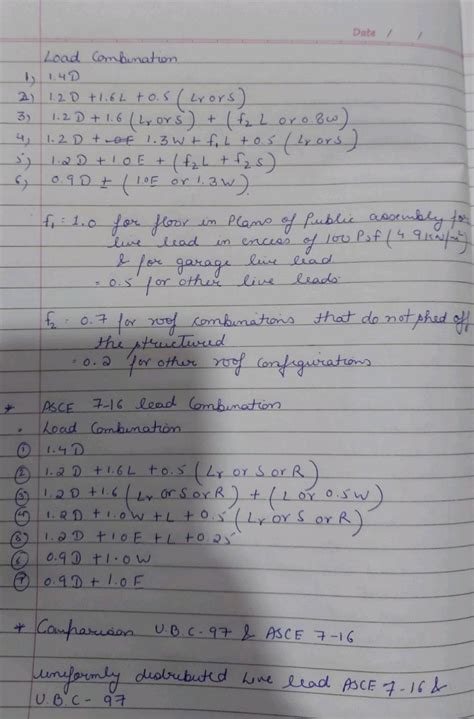 Date / /
Load Combination
1) 1.4D
2) 1.2D + 1.6L + 0.5 (Lr or S)
3) 1.2D + 1.6 (Lr or S) + (f2 L or 0.8W)
4) 1.2D + 1.3W + f1L + 0.5 (Lr or S)
5) 1.2D + 1.0E + (f2L + f2S)
6) 0.9D ± (1.0E or 1.3W).
f1 : 1.0 for floor in Plams of Public assembly for
live lead in encess of 100 Psf (4.9KN/m²)
& for garage live lead
= 0.5 for other live leads.
f2 : 0.7 for roof combinations that do not phed off
the structured
= 0.2 for other roof configurations
* ASCE 7-16 lead Combination
• Load Combination
① 1.4D
② 1.2D + 1.6L + 0.5 (Lr or S or R)
③ 1.2D + 1.6 (Lr or S or R) + (L or 0.5W)
1.2D + 1.0W + L + 0.5 (Lr or S or R)
1.2D + 1.0E + L + 0.2S
⑥ 0.9D + 1.0W
⑦ 0.9D + 1.0E
* Comparison U.B.C-97 & ASCE 7-16
uniformly distributed Live lead ASCE 7-16 &
U.B.C-97